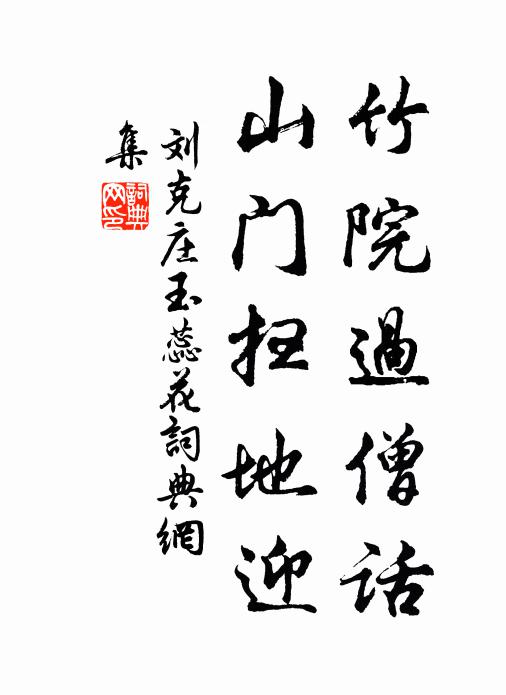 竹院過僧話
山门扫地迎
刘克庄玉蕊花詞典網
集
詞典网印